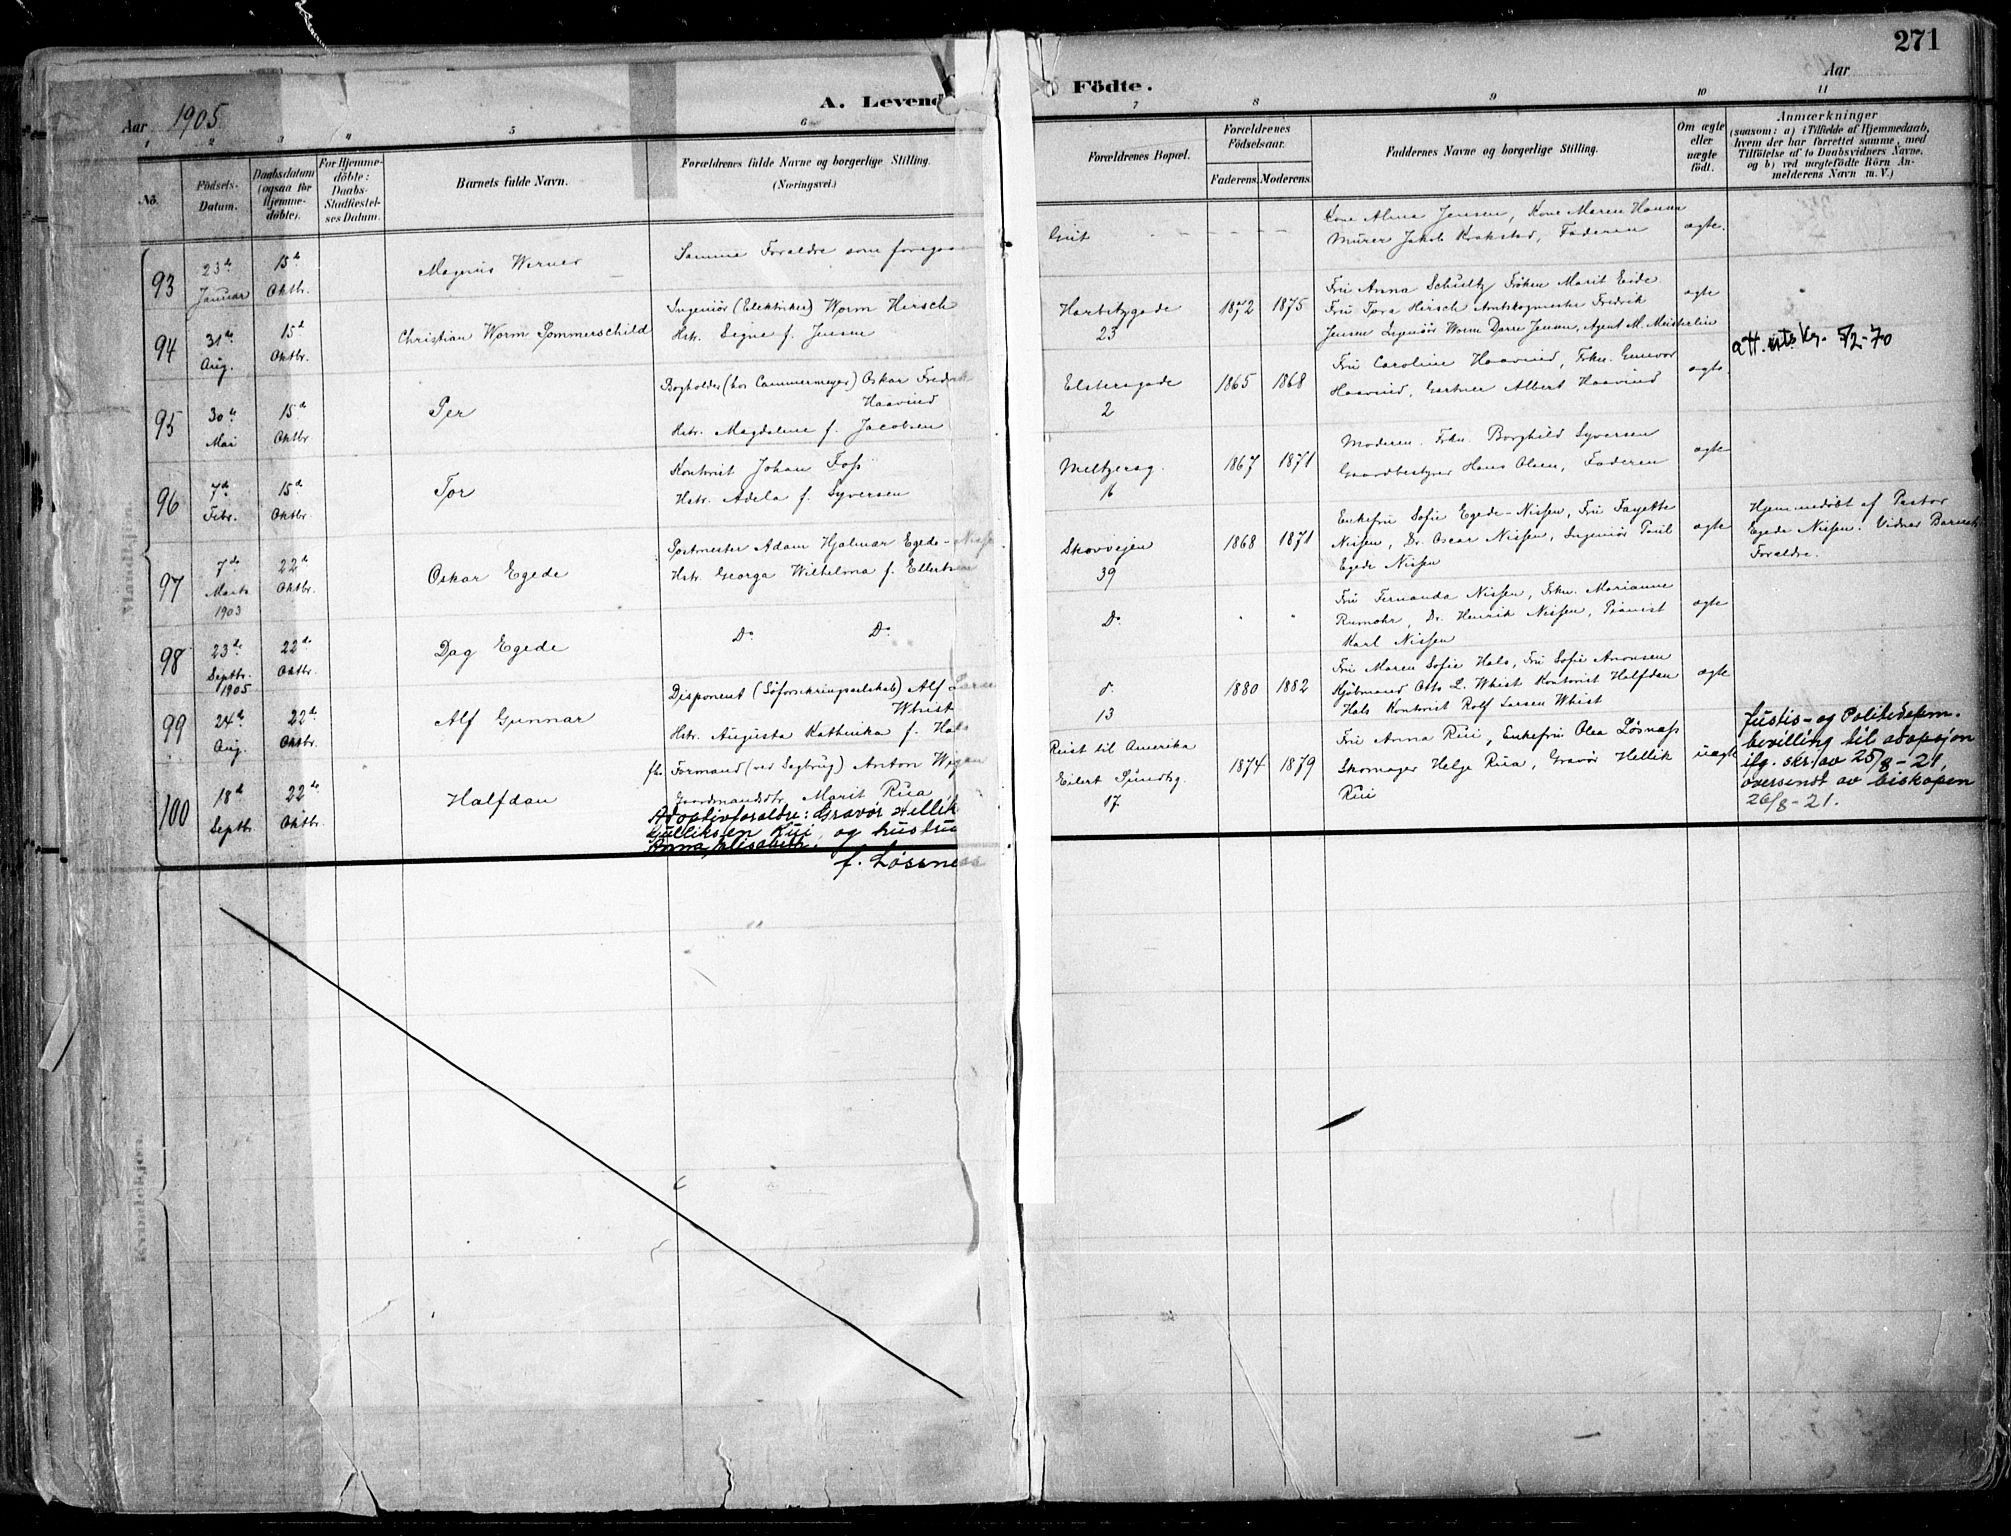 271
Aar 1905
A. Levend
Födte.
Aar
1 2 3 4 5 6 7 8 9 10 11
No.
Födsels-Datum.
Daabsdatum (ogsaa for Hjemme-döbte).
For Hjemme-döbte: Daabs-Stadfæstel-ses Datum.
Barnets fulde Navn.
Forældrenes fulde Navne og borgerlige Stilling.
(Næringsvei.)
Forældrenes Bopæl.
Forældrenes Födselsaar.
Faderens. Moderens.
Faddernes Navne og borgerlige Stilling.
Om ægte eller uægte födt.
Anmærkninger
(saasom: a) i Tilfælde af Hjemmedaab,
hvem der har forrettet samme, med
Tilföielse af to Daabsvidners Navne,
og b) ved uægtefödte Börn An-
melderens Navn m. V.)
Mandkjøn.
93
23de Januar
15de Oktbr.
Magnus Werner
Samme Foraldre som foregaa
Kone Alma Jensen, Kone Maren Hansen
Murer Jakob Krakstad, Faderen
ægte.
94
31te Aug.
15de Oktbr.
Christian Worm Sommerschild
Ingeniør (Elektriker) Worm Hirsch
Hstr. Signe f. Jensen
Harbitzgade
23
1872 1875
Fru Anna Schultz Frøken Marit Eide
Fru Tora Hirsch Amtskogmester Fredrik
Jensen Ingeniør Worm Darre Jensen, Agent M. Meisterlin
ægte
95
30te Mai
15de Oktbr
Per
Bogholder (hos Cammermeyer) Oskar Fredrik
Haavind
Hstr. Magdalene f. Jacobsen
Elstersgade
2
1865 1868
Fru Caroline Haavind, Frkn. Gunvor
Haavind, Gartner Albert Haavind
ægte
att. utskr. 5/2-70
96
7de Febr.
15de Oktbr.
Tor
Kontorist Johan Foss
Hstr. Adela f. Syversen
Meltzersg.
16
1867 1871
Moderen. Frkn. Borghild Syversen
Gaardbestyrer Hans Olsen, Faderen
ægte
97
7de Marts 1903
22de Oktbr.
Oskar Egede
Postmester Adam Hjalmar Egede-Nisse
Hstr. Georga Wilhelma f. Ellertsen
Skovveien
39
1868 1871
Enkefru Sofie Egede-Nissen, Fru Fayette
Nissen, Dr. Oscar Nissen, Ingeniør Paul
Egede Nissen
ægte
Hjemmedøbt af Pastor
Egede Nissen. Vidner Barnets
Foraldre.
98
23de Septbr. 1905
22de Oktbr.
Dag Egede
Do Do
Do
" "
Fru Fernanda Nissen, Frkn. Marianne
Rumohr, Dr. Henrik Nissen, Pianist
Karl Nissen
ægte
99
24de Aug.
22de Oktbr.
Alf Gunnar
Disponent (Søforsikringsselskab) Alf Larse
Whist
Hstr. Augusta Kathinka f. Hals
13
1880 1882
Fru Maren Sofie Hals, Fru Sofie Aronsen
Kjøbmand Otto L. Whist Kontorist Halfdan
Hals Kontorist Rolf Larsen Whist
ægte
100
18de Septbr.
22de Oktbr.
Halfdan
fhv. Formand (ved Sagbrug) Anton Wigen
Gaardmandsdtr. Marit Rua
Adoptivforældre: Gravør Hellik
Gulliksen Rui, og hustru
Anna Elisabeth.
f. Løssness
Reist til Amerika
Eilert Sundtsg.
17.
1874 1879
Fru Anna Rui, Enkefru Olea Løsnæss
Skomager Helge Rua, Gravør Hellik
Rui
uægte
Justis- og Politidepm.
bevilling til adopsjon
ifg. skr. av 25/8-21,
oversendt av biskopen
26/8-21.
Kvindekjøn.